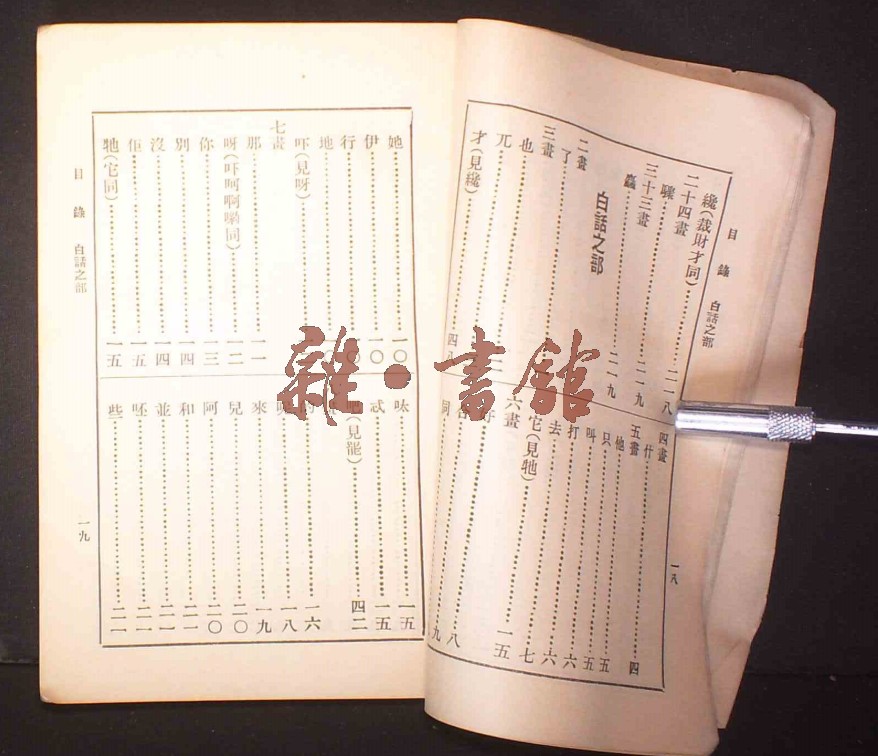 目錄 白話之部
纔(裁財才同)……二一八
二十四畫
驟……二一九
三十三畫
麤……二一九
白話之部
二畫
了
三畫
也
兀
才(見纔)……四八
四畫
什……四
五畫
他……五
只……五
叫……五
打……六
去……六
它(見牠)……七
六畫
好……一五
同……九
一八
目錄 白話之部
她……一〇
伊……一〇
行
地
吓(見呀)
七畫
那……一一
呀(吓呵啊嚹同)……一二
你……一三
別……一四
沒……一四
佢……一五
牠(它同)……一五
呔……一五
忒……一五
吧(見罷)……四二
的……一六
呢……一八
來……一九
兒……二〇
阿……二〇
和……二一
並……二一
呸……二一
些……二一
一九
雜·書館